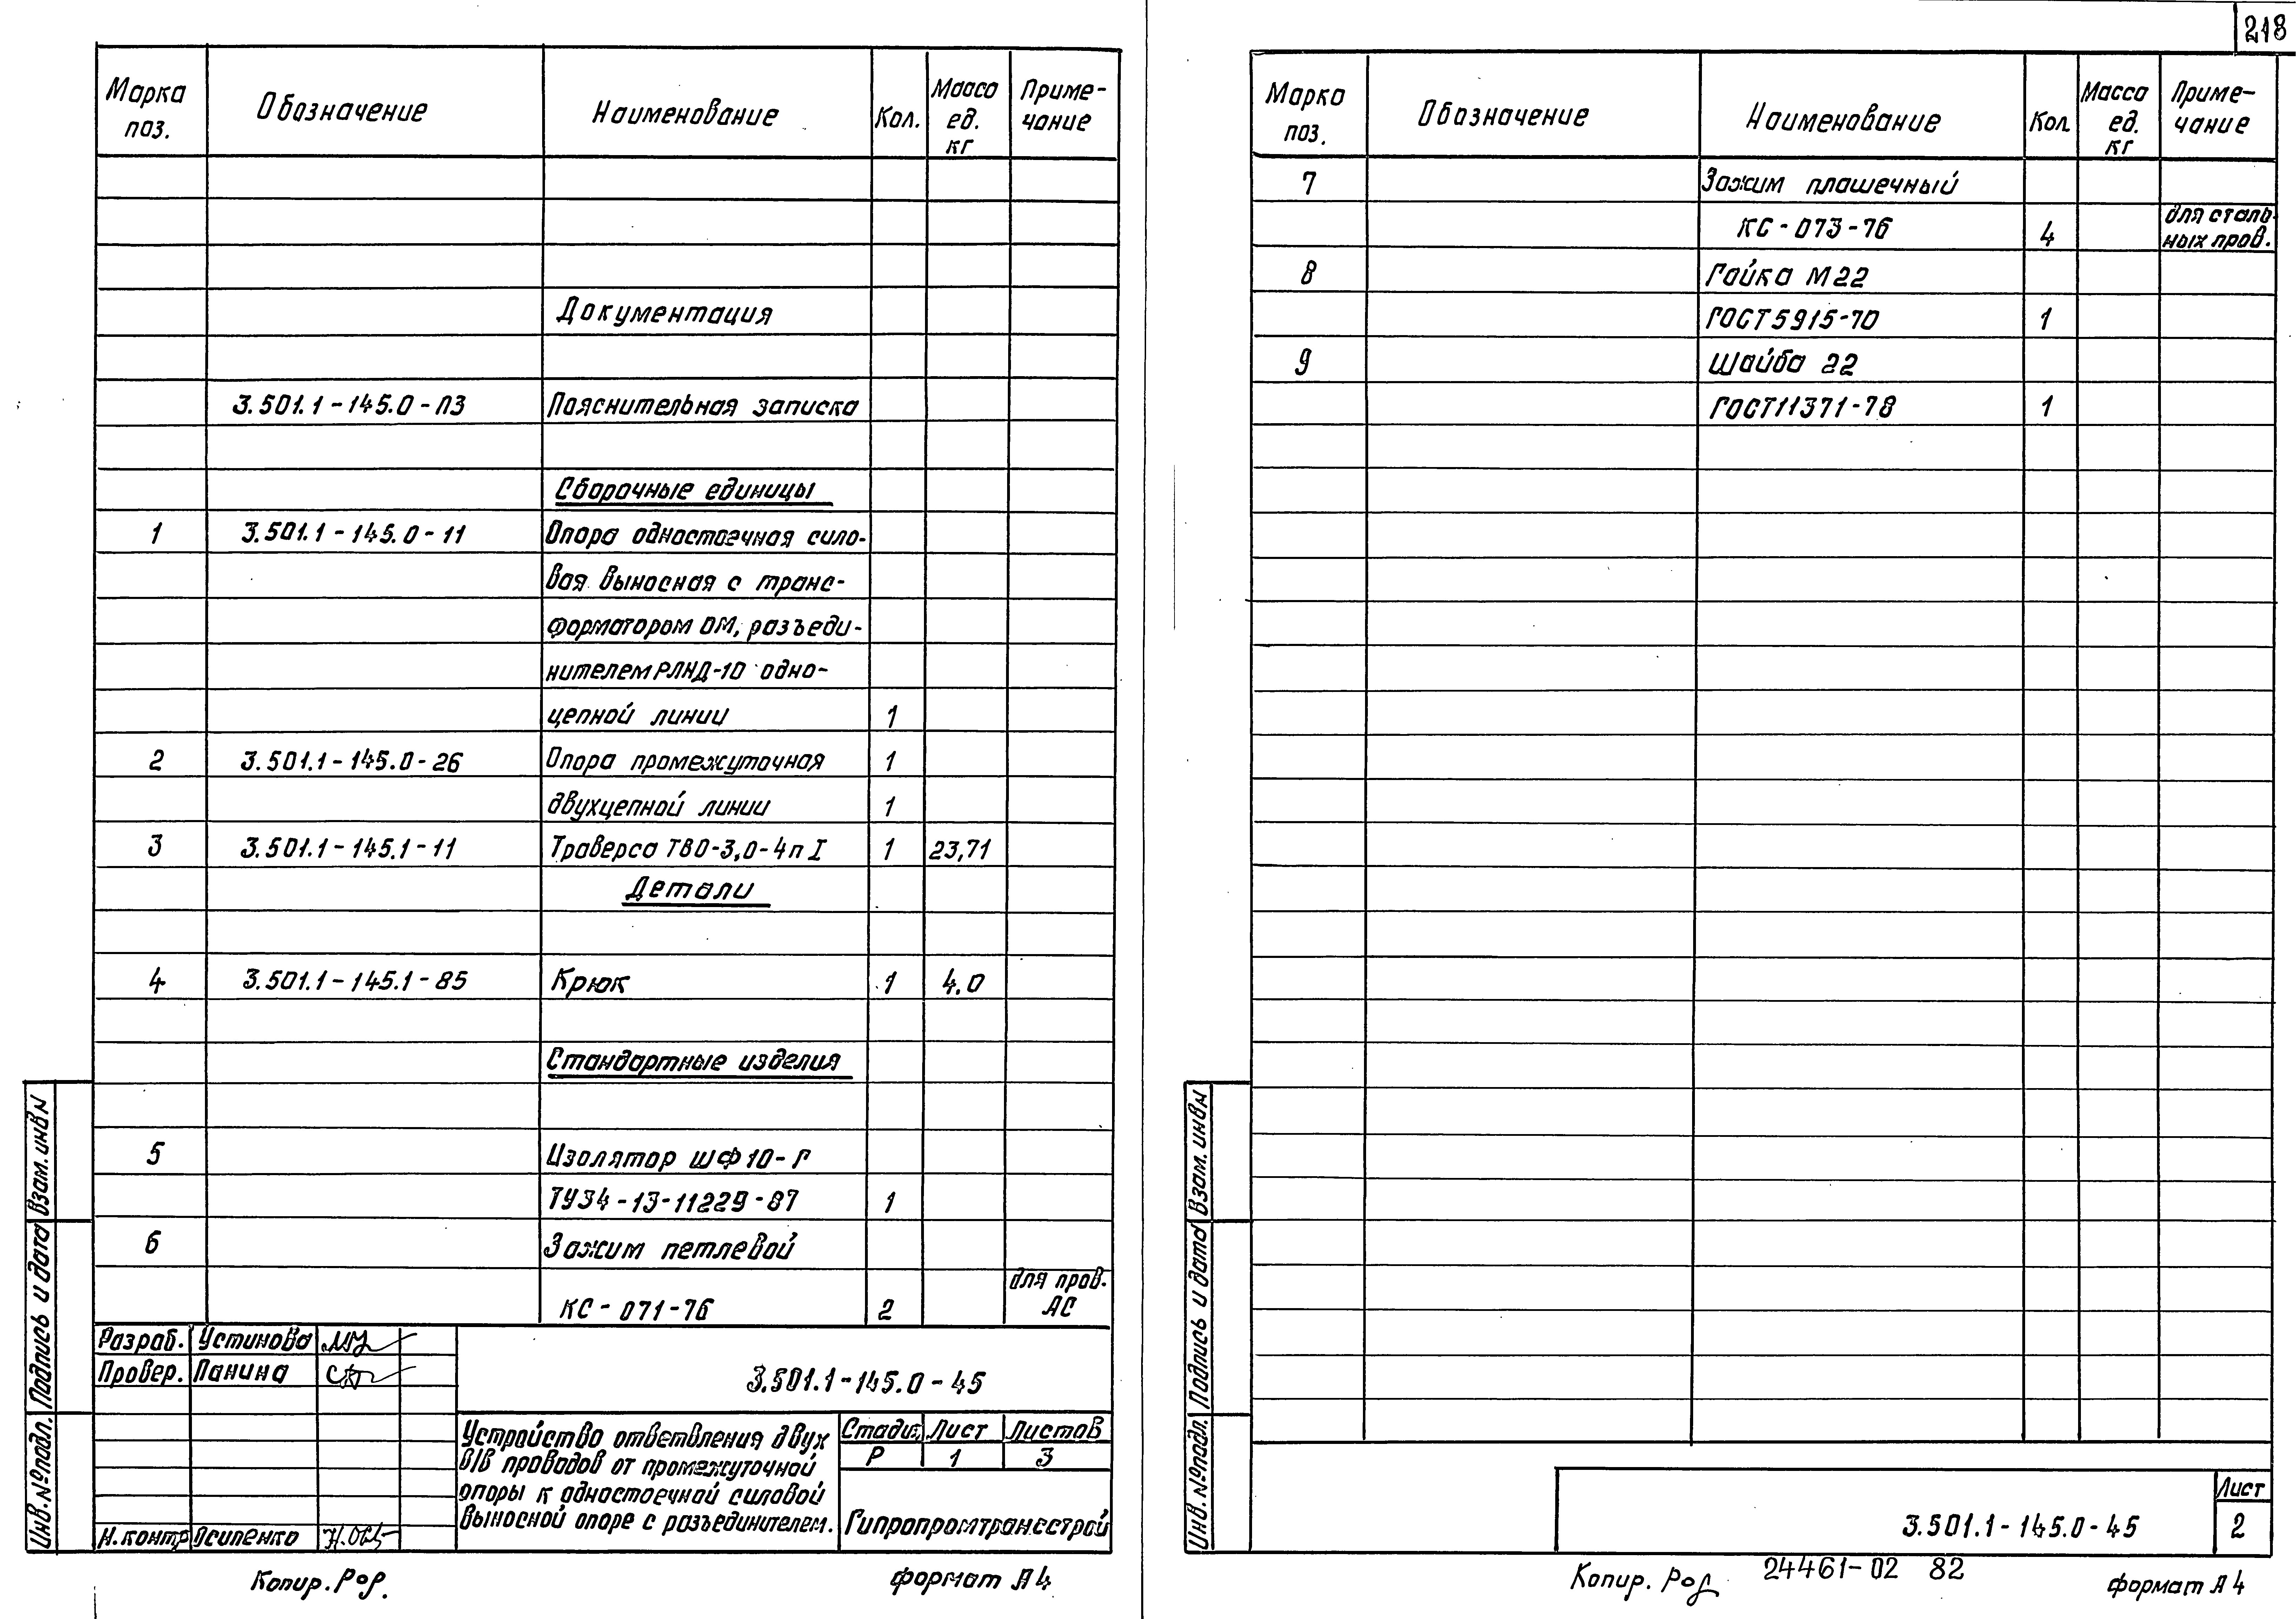 218
Марка поз. Обозначение Наименование Кол. Масса ед. кг Приме-чание
Документация
3.501.1-145.0-ПЗ Пояснительная записка
Сборочные единицы
1 3.501.1-145.0-11 Опора одностоечная сило-
вая выносная с транс-
форматором ОМ, разъеди-
нителем РЛНД-10 одно-
цепной линии 1
2 3.501.1-145.0-26 Опора промежуточная 1
двухцепной линии 1
3 3.501.1-145.1-11 Траверса ТВО-3,0-4п I 1 23,71
Детали
4 3.501.1-145.1-85 Крюк 1 4.0
Стандартные изделия
5 Изолятор ШФ10-Г
ТУ34-13-11229-87 1
6 Зажим петлевой
КС-071-76 2 для пров. АС
Разраб. Устинова
Провер. Панина
Н.контр Осипенко
3.501.1-145.0-45
Устройство ответвления двух
В/В проводов от промежуточной
опоры к одностоечной силовой
выносной опоре с разъединителем.
Стадия Лист Листов
Р 1 3
Гипропромтрансстрой
Инв.№подл. Подпись и дата Взам.инв№
Копир. формат А4
Марка поз. Обозначение Наименование Кол. Масса ед. кг Приме-чание
7 Зажим плашечный
КС-073-76 4 для сталь-ных пров.
8 Гайка М22
ГОСТ5915-70 1
9 Шайба 22
ГОСТ11371-78 1
Инв.№подл. Подпись и дата Взам.инв№
3.501.1-145.0-45
Лист
2
Копир. 24461-02 82 формат А4